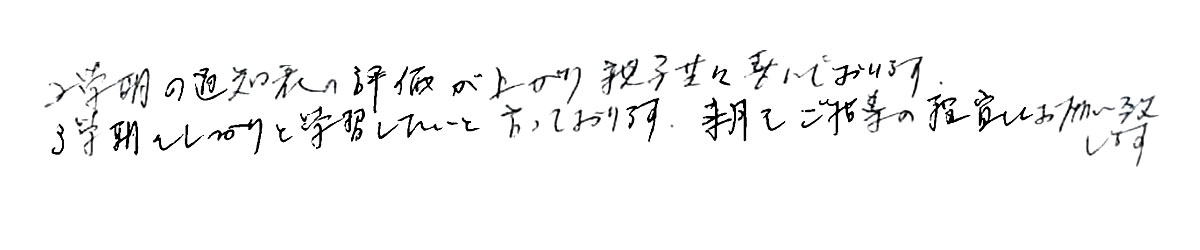 2学期の通知表の評価が上がり親子共に喜んでおります.
3学期もしっかりと学習したいと言っております. 来月もご指導の程宜しくお願い致
します